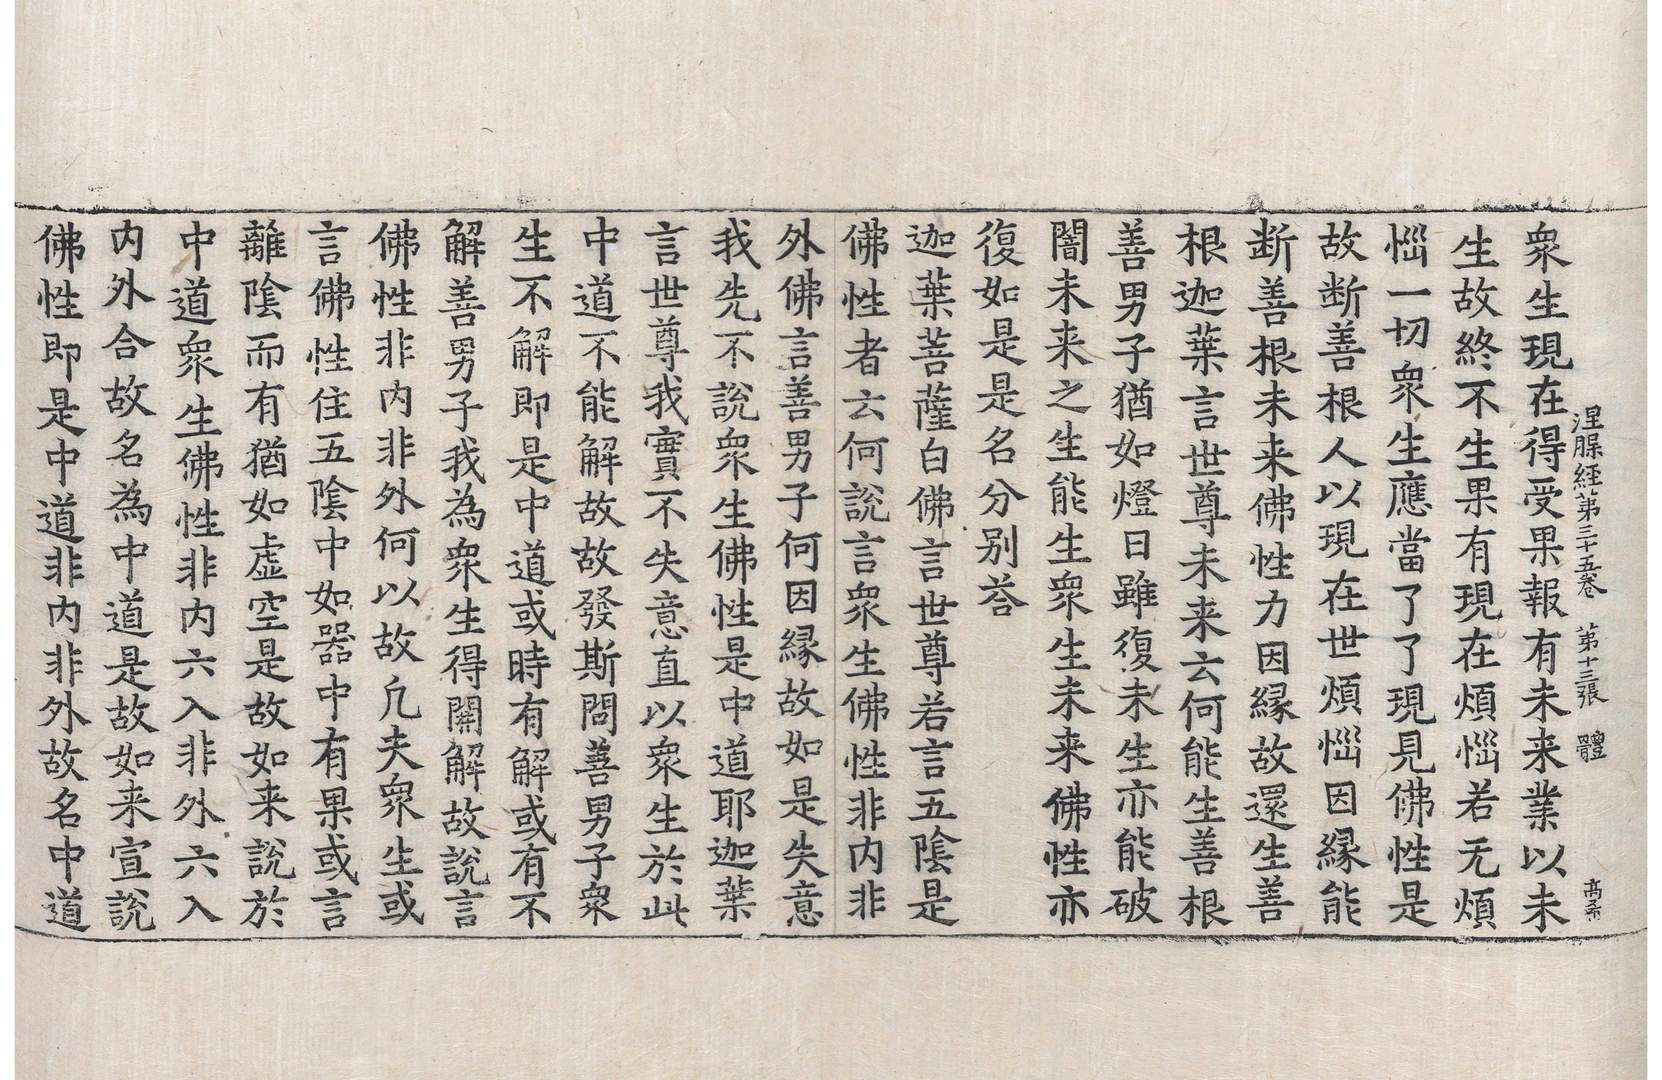 涅槃経第三十五卷　第十三張　體　高矛
衆生現在得受果報有未来業以未
生故終不生果有現在煩惱若无煩
惱一切衆生應當了了現見佛性是
故断善根人以現在世煩惱因縁能
断善根未来佛性力因縁故還生善
根迦葉言世尊未来云何能生善根
善男子猶如燈日雖復未生亦能破
闇未来之生能生衆生未来佛性亦
復如是是名分別荅
迦葉菩薩白佛言世尊若言五陰是
佛性者云何說言衆生佛性非内非
外佛言善男子何因縁故如是失意
我先不說衆生佛性是中道耶迦葉
言世尊我實不失意直以衆生於此
中道不能解故故發斯問善男子衆
生不解即是中道或時有解或有不
解善男子我為衆生得開解故說言
佛性非内非外何以故凡夫衆生或
言佛性住五陰中如器中有果或言
離陰而有猶如虚空是故如来說於
中道衆生佛性非内六入非外六入
内外合故名為中道是故如来宣說
佛性即是中道非内非外故名中道